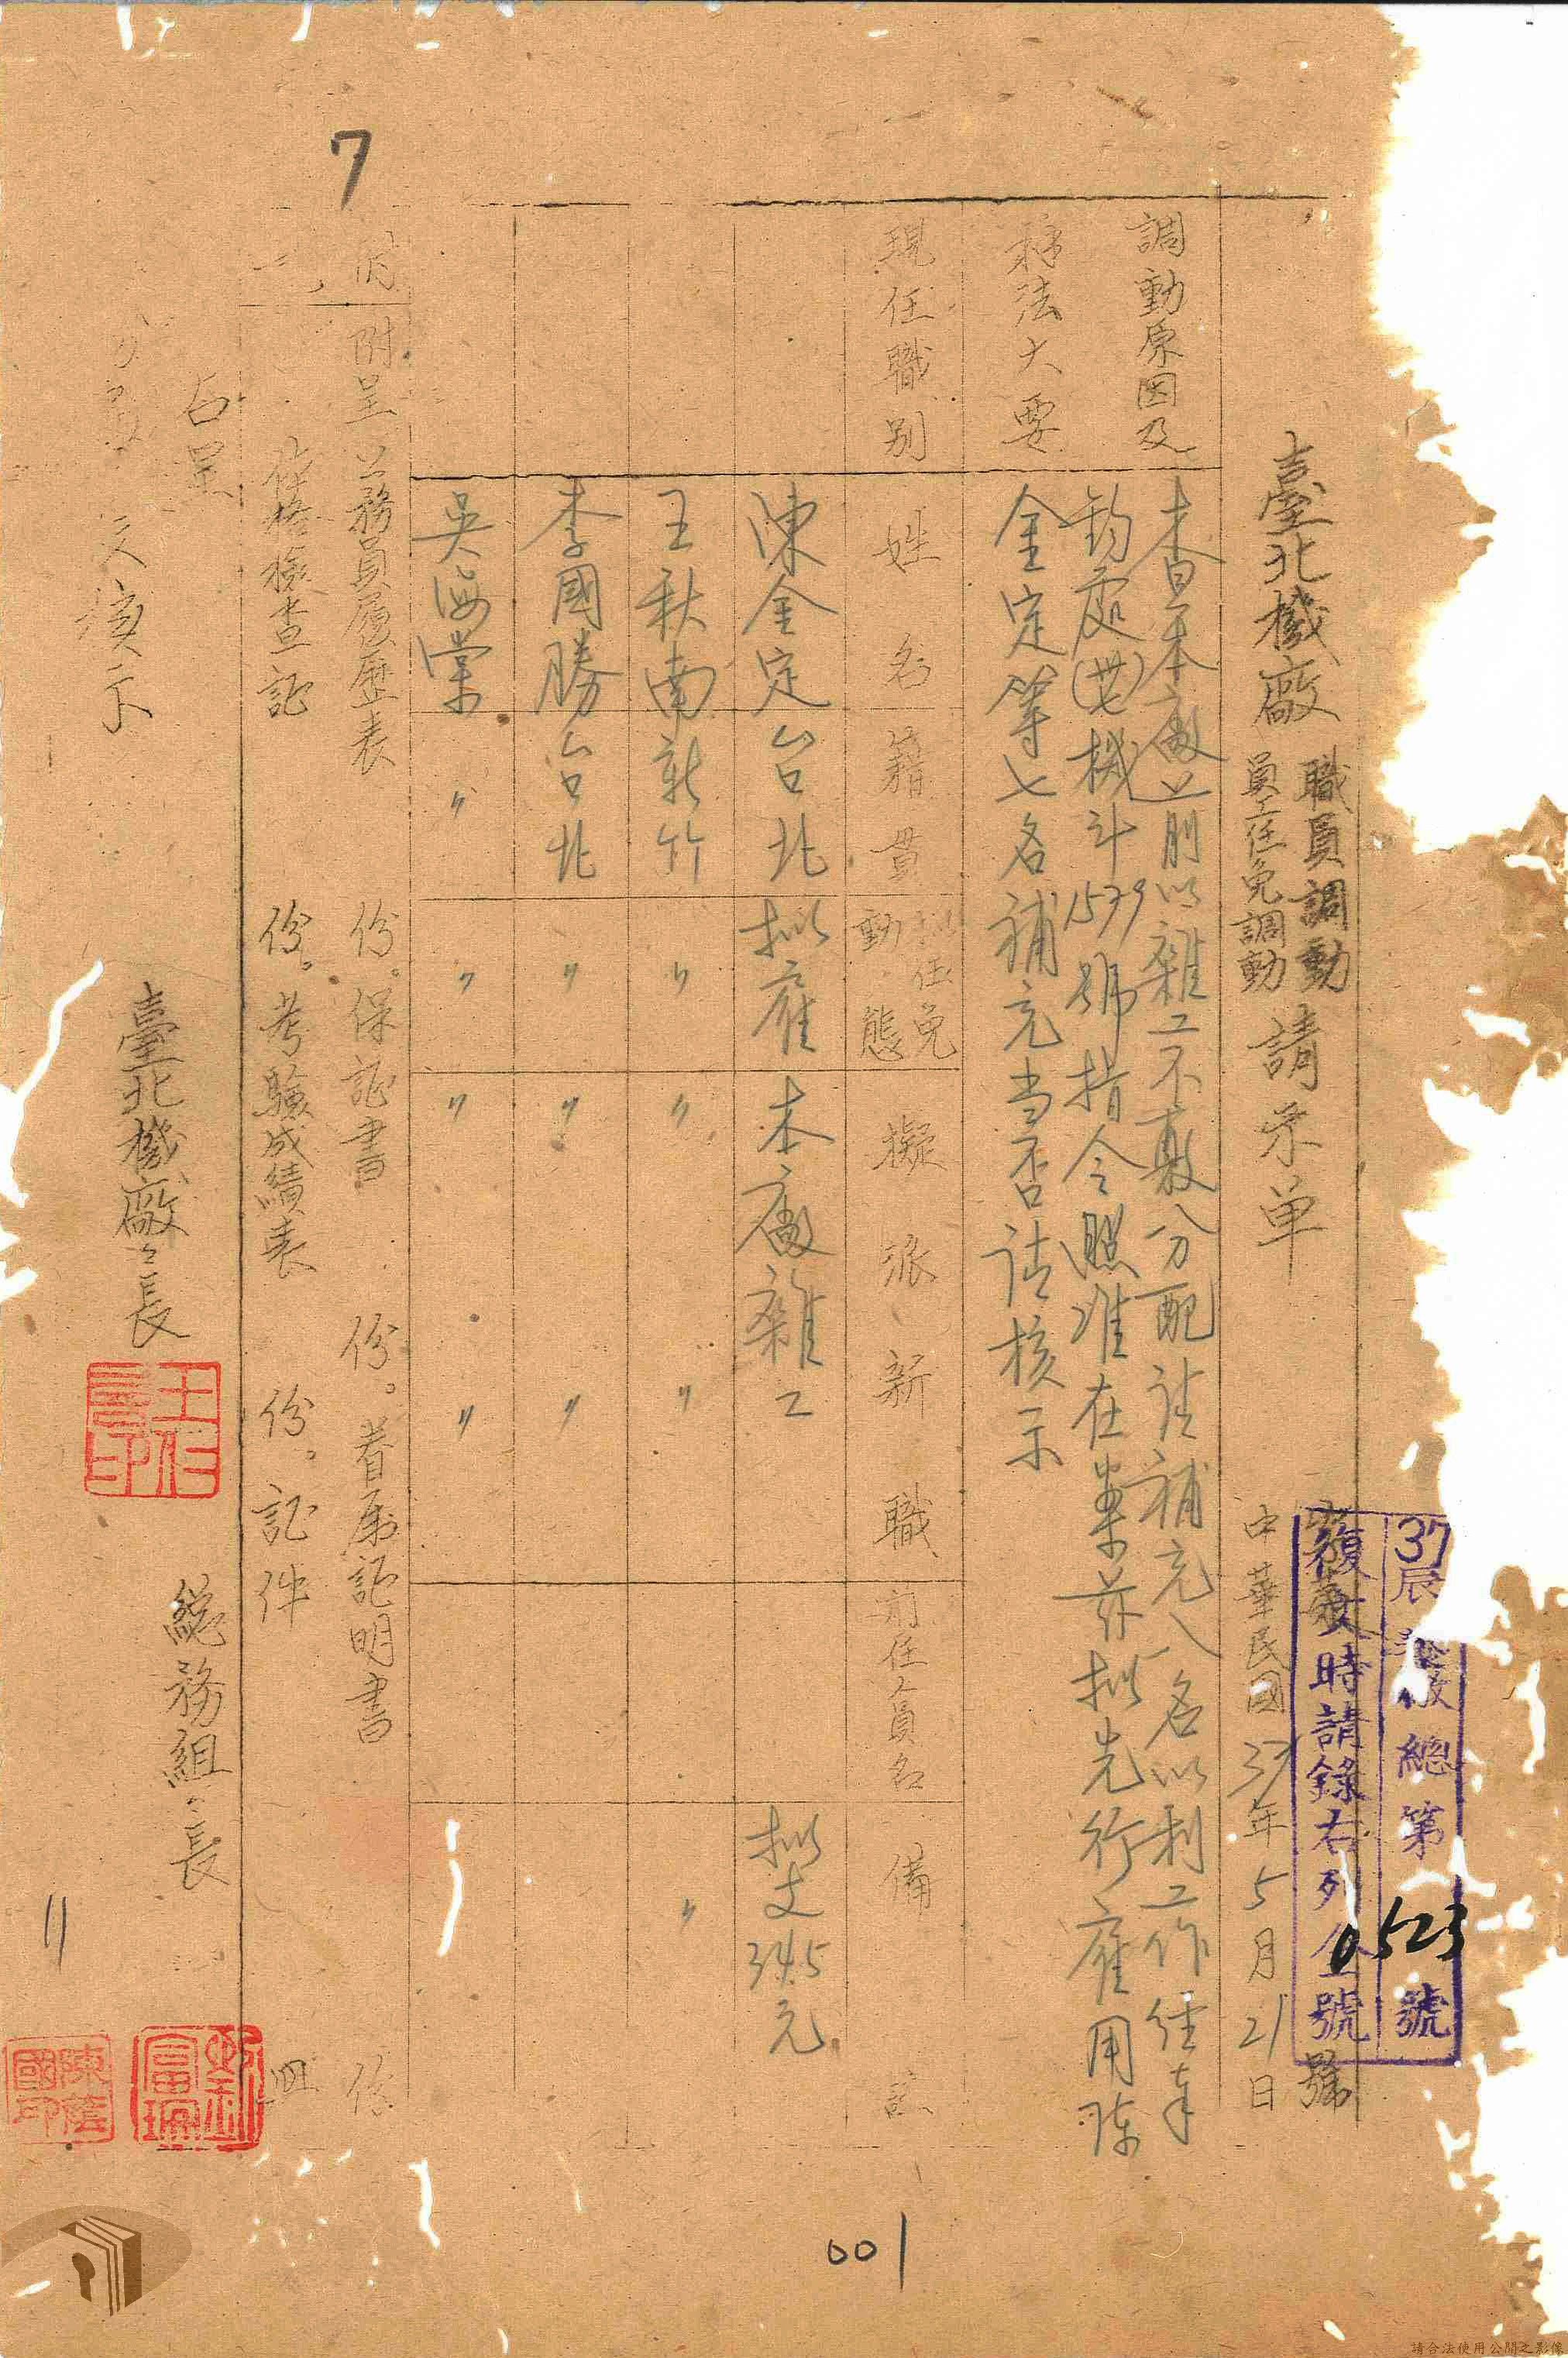 7
37辰 總第0523號
復文時請錄右列全號
號
臺北機廠 職員調動 員工任免調動 請示单
中華民國37年5月21日
調動原因及
辦法大要
查本廠前以雜工不敷分配請補充八名以利工作經奉
鈞處(卅七)機斗1579號指令照准在案茲拟先行雇用陳
金定等七名補充当否請核示
現任職別
姓名
籍貫
拟任免
動態
擬派新職
前任人員名
備
陳金定 台北 拟雇 本廠雜工 拟支345元
王秋南 新竹 〃 〃 〃 〃
李國勝 台北 〃 〃 〃
吳海棠 〃 〃 〃 〃
附呈公務員履歷表 份。保証書 份。眷屬証明書 份
体格檢查証 份。考驗成績表 份。証件
右呈
核示
臺北機廠々長
總務組々長
王仁
印
劉
富
陳
國印
〃
001
請合法使用公開之影像